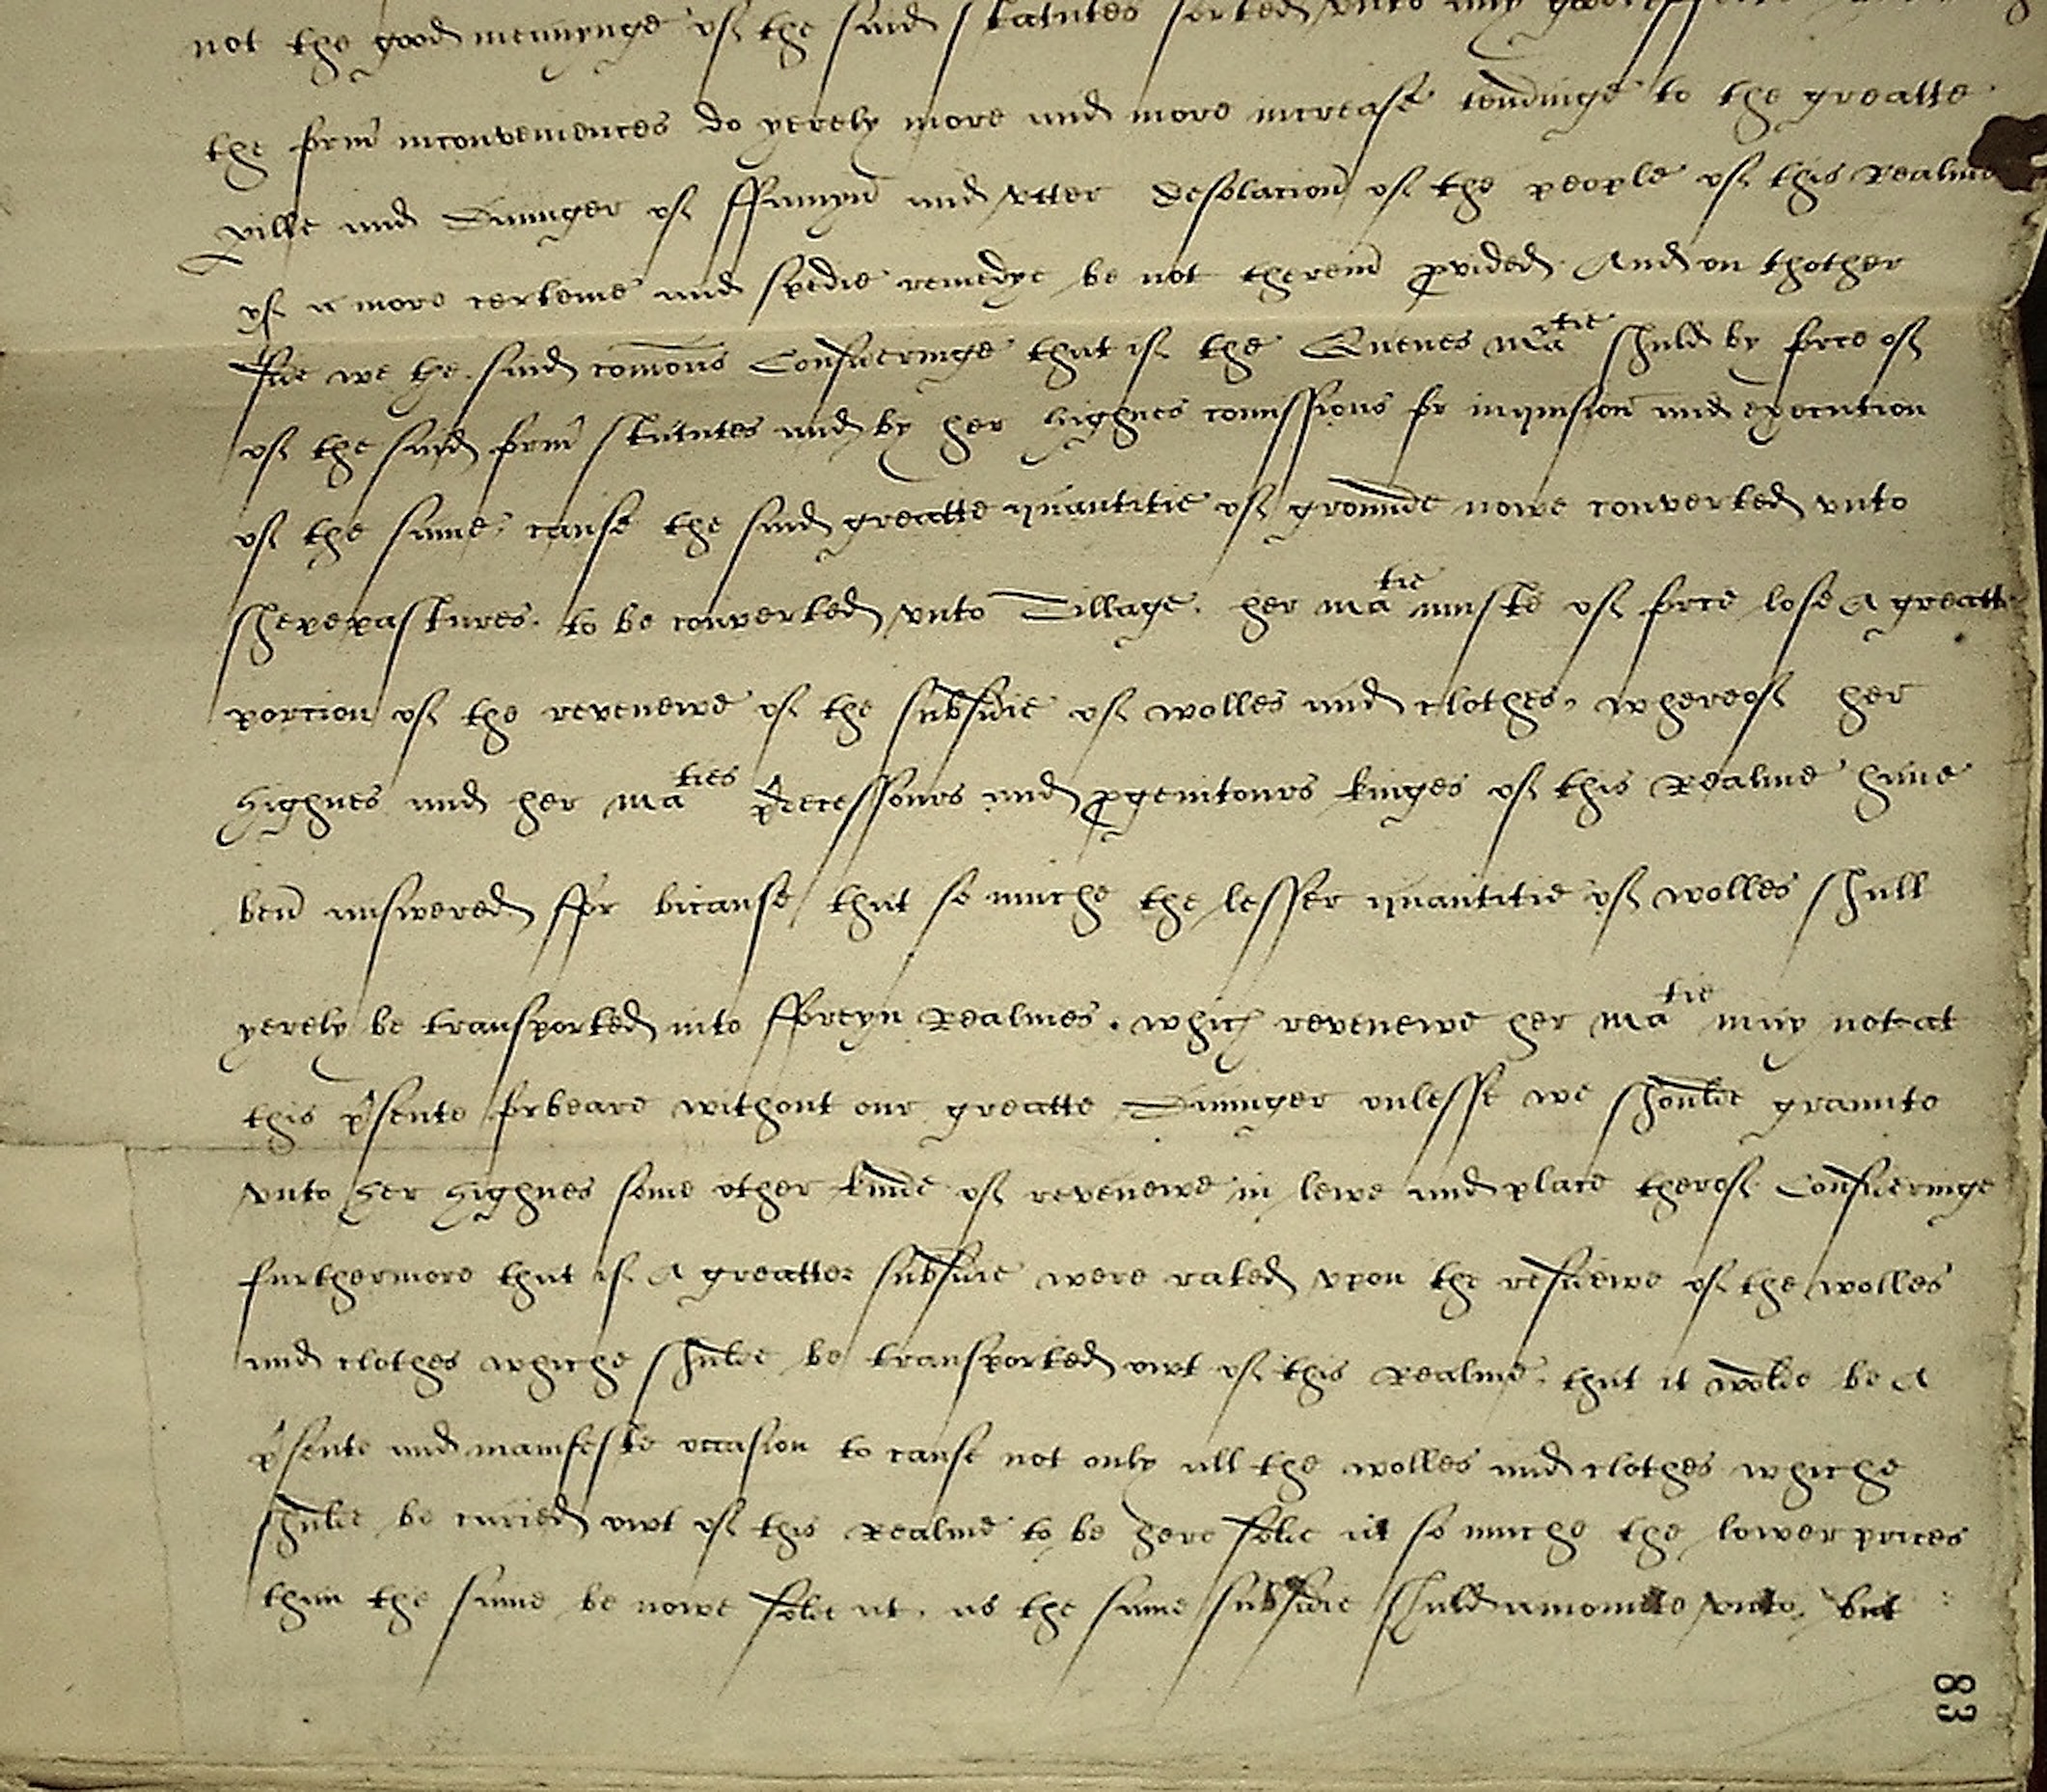 not the good meanynge of the said statutes sorted unto any good effecte
the form̃ inconveniences do yerely more and more increase tendinge to the greatte
pille and Daunger of ffamyn̄ and utter desolacion̄ of the people of this Realme
yf a more certeine and spedie remedye be not therein̄ pvided. And on thother
side we the said com̄ons Consideringe that if the Quenes matie shuld by force of
of the said form̃ statutes and by her highnes comissions for inquisicion̄ and execution
of the same, cause the said greatte quantitie of grounde nowe converted unto
shepepastures. to be converted unto Tillage. her matie muste of force lose A greatte
portion of the revenewe of the subsidie of wolles and clothes, whereof her
highnes and her maties pdecessours and pgenitours kinges of this Realme have
ben̄ answered ffor bicause that so muche the lesser quantitie of wolles shall
yerely be transported into fforeyn Realmes. which revenewe her matie may not at
this psente forbeare without our greatte Daunger unlesse we shoulde graunte
unto her highnes some other kinde of revenewe in lewe and place therof Consideringe
furthermore that if A greatter subsidie were rated upon the residewe of the wolles
and clothes whiche shulde be transported owt of this Realme. that it wolde be A
psente and manifeste occasion to cause not only all the wolles and clothes whiche
shulde be caried owt of this Realme to be here solde at so muche the lower prices
than the same be nowe solde at. as the same subsidie shuld amounte unto, but
83